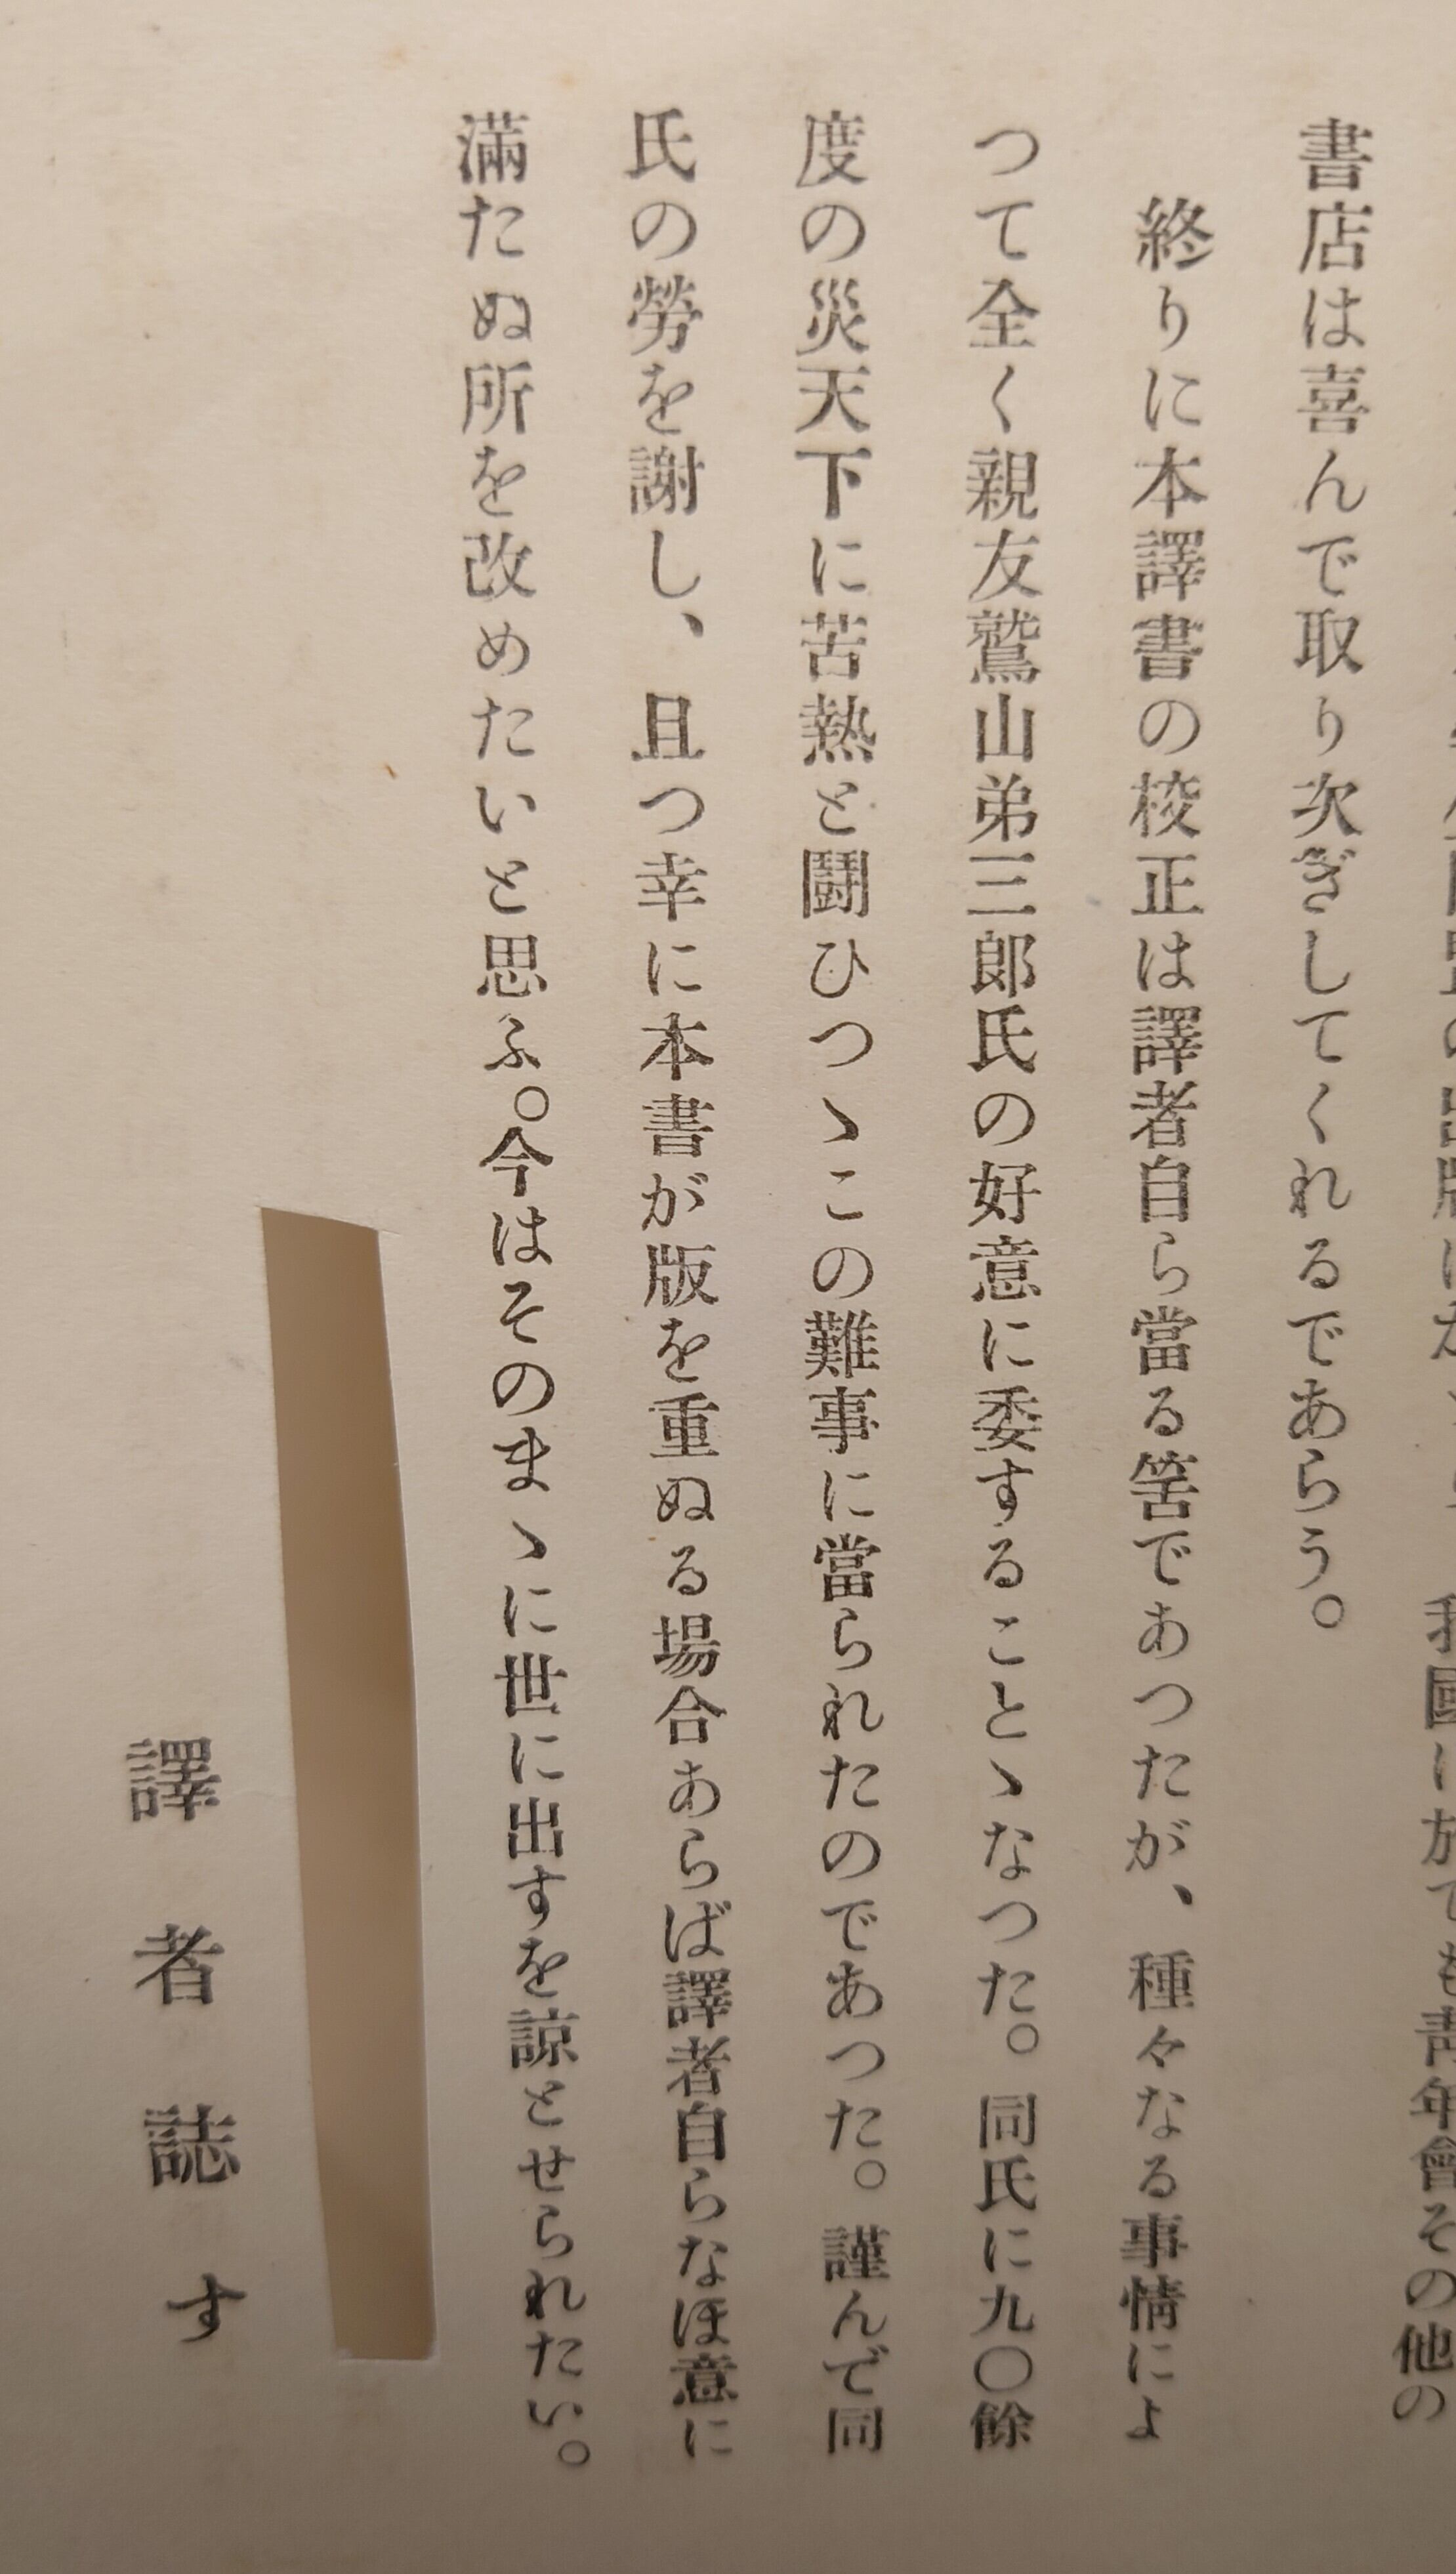 我國に於ても靑年會その他の
書店は喜んで取り次ぎしてくれるであらう。
終りに本譯書の校正は譯者自ら當る筈であつたが、種々なる事情によ
つて全く親友鷲山弟三郎氏の好意に委することゝなつた。同氏に九〇餘
度の災天下に苦熱と鬪ひつゝこの難事に當られたのであつた。謹んで同
氏の勞を謝し、且つ幸に本書が版を重ぬる場合あらば譯者自らなほ意に
滿たぬ所を改めたいと思ふ。今はそのまゝに世に出すを諒とせられたい。
譯者誌す